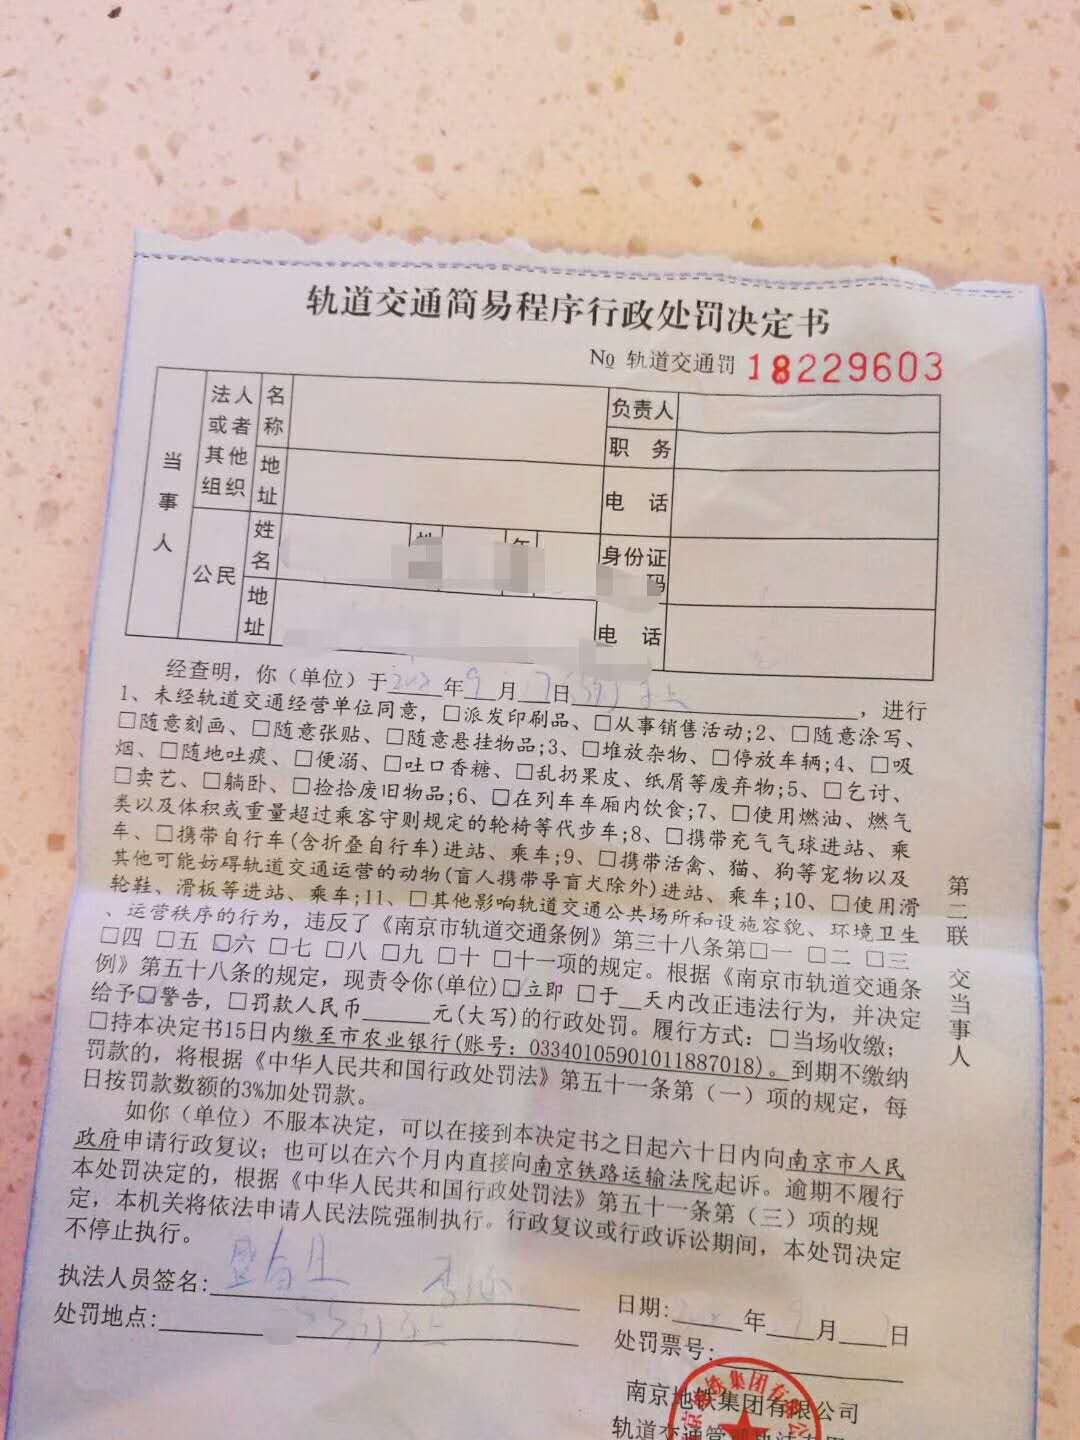 轨道交通简易程序行政处罚决定书
№ 轨道交通罚 18229603
当事人
法人或者其他组织
名称
负责人
职务
地址
电话
公民
姓名
身份证
码
地址
电话
经查明，你（单位）于 年9月17日 ，进行
1、未经轨道交通经营单位同意，□派发印刷品、□从事销售活动;2、□随意涂写、
□随意刻画、□随意张贴、□随意悬挂物品;3、□堆放杂物、□停放车辆;4、□吸
烟、□随地吐痰、□便溺、□吐口香糖、□乱扔果皮、纸屑等废弃物;5、□乞讨、
□卖艺、□躺卧、□捡拾废旧物品;6、□在列车车厢内饮食;7、□使用燃油、燃气
类以及体积或重量超过乘客守则规定的轮椅等代步车;8、□携带充气气球进站、乘
车、□携带自行车(含折叠自行车)进站、乘车;9、□携带活禽、猫、狗等宠物以及
其他可能妨碍轨道交通运营的动物(盲人携带导盲犬除外)进站、乘车;10、□使用滑
轮鞋、滑板等进站、乘车;11、□其他影响轨道交通公共场所和设施容貌、环境卫生
、运营秩序的行为，违反了《南京市轨道交通条例》第三十八条第□一 □二 □三
□四 □五 □六 □七 □八 □九 □十 □十一项的规定。根据《南京市轨道交通条
例》第五十八条的规定，现责令你(单位)□立即 □于__天内改正违法行为，并决定
给予□警告，□罚款人民币______元(大写)的行政处罚。履行方式：□当场收缴；
□持本决定书15日内缴至市农业银行(账号：03340105901011887018)。到期不缴纳
罚款的，将根据《中华人民共和国行政处罚法》第五十一条第（一）项的规定，每
日按罚款数额的3%加处罚款。
如你（单位）不服本决定，可以在接到本决定书之日起六十日内向南京市人民
政府申请行政复议；也可以在六个月内直接向南京铁路运输法院起诉。逾期不履行
本处罚决定的，根据《中华人民共和国行政处罚法》第五十一条第（三）项的规
定，本机关将依法申请人民法院强制执行。行政复议或行政诉讼期间，本处罚决定
不停止执行。
执法人员签名:
日期: 年 月 日
处罚地点:
处罚票号:
南京地铁集团有限公司
第二联 交当事人